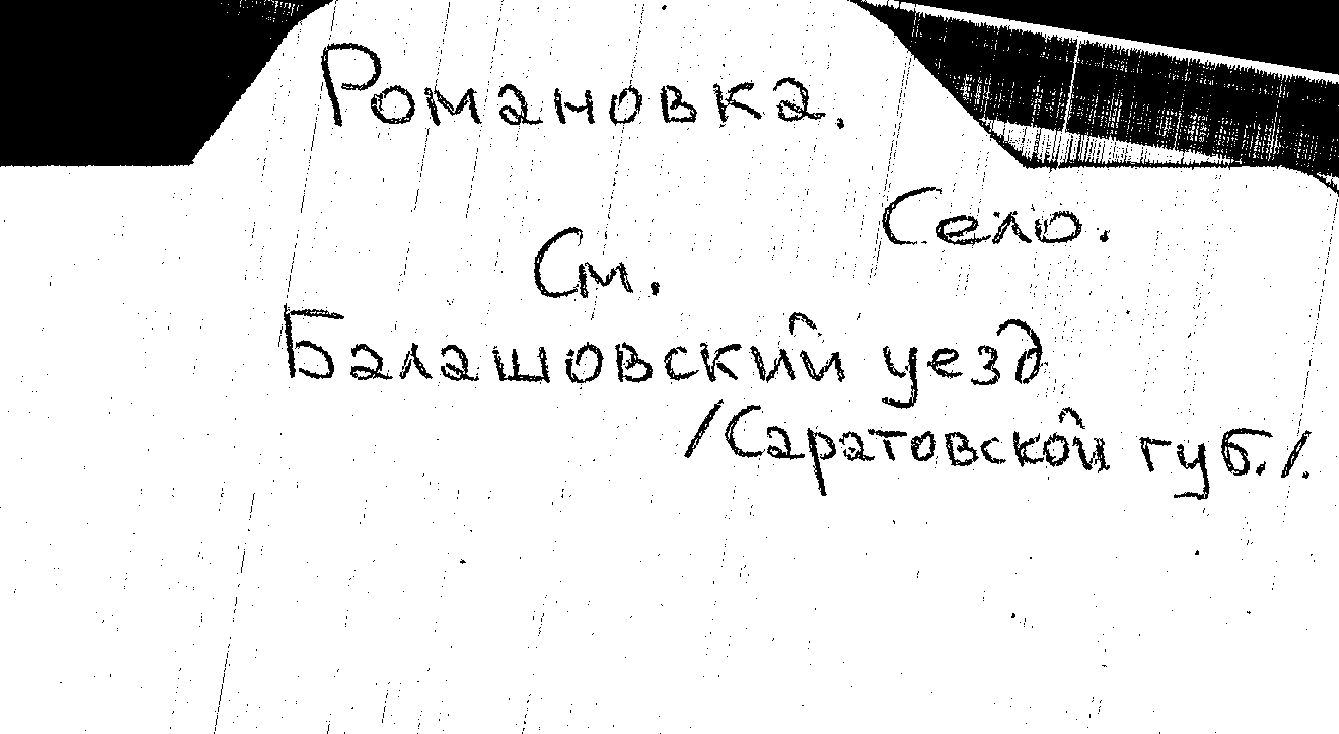 Романовка.
Село.
См.
Балашовский уезд
/Саратовской губ./.